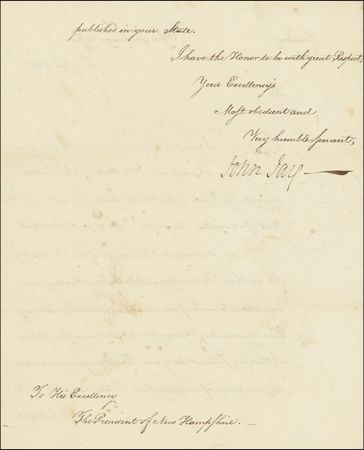 published in your State.
I have the Honor to be with great Respect,
Your Excellency's
Most obedient and
Very humble Servant,
John Jay
To His Excellency
The President of New Hampshire.